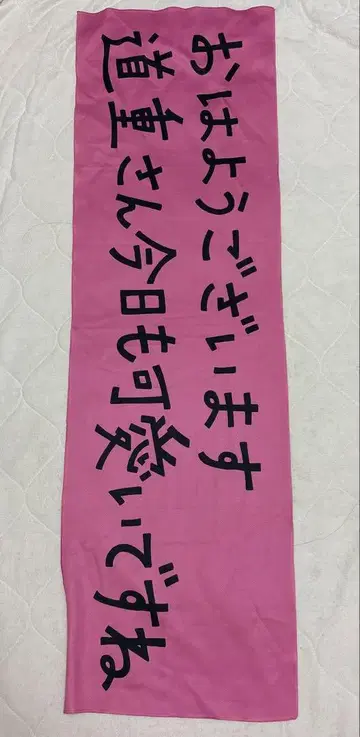 おはようございます
道重さん今日も可愛いですね